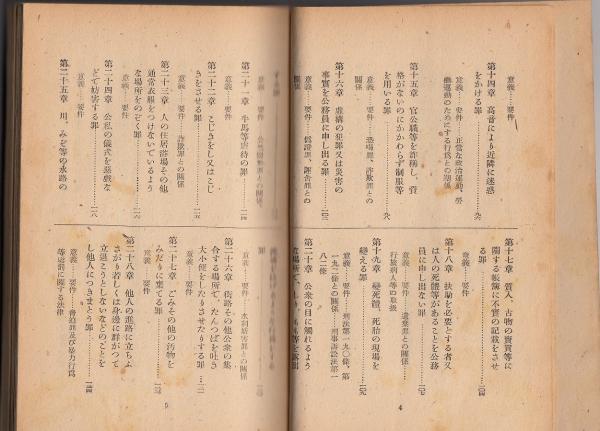 意義……要件
第十四章 高音により近隣に迷惑
をかける罪
意義……要件……正當な政治運動、勞
働運動のためにする行爲との關係
第十五章 官公職等を詐稱し、資
格がないのにかかわらず制服等
を用いる罪
意義……要件……恐喝罪、詐欺罪との
關係
第十六章 虚構の犯罪又は災害の
事實を公務員に申し出る罪
意義……要件……僞證罪、誣告罪との
關係
第十七章 質入、古物の賣買等に
關する帳簿に不實の記載をさせ
る罪
意義……要件
第十八章 扶助を必要とする者又
は人の死體等があることを公務
員に申し出ない罪
意義……要件……遺棄罪との關係……
行旅病人等の取扱
第十九章 變死體、死胎の現場を
變える罪
意義……要件……刑法第一九〇條、第
一九二條との關係……刑事訴訟法第一
八二條
第二十章 公衆の目に觸れるよう
な場所で、
4
罪
意義……要件
第二十一章 牛馬等虐待の罪
意義……要件
第二十二章 こじきをし又はこじ
きをさせる罪
意義……要件……詐欺罪との關係
第二十三章 人の住居浴場その他
通常衣服をつけないでいるよう
な場所をのぞく罪
意義……要件
第二十四章 公私の儀式を惡戯な
どで妨害する罪
意義……要件
第二十五章 川、みぞ等の水路の
意義……要件……水利妨害罪との關係
第二十六章 街路その他公衆の集
合する場所で、たんつばを吐き
大小便をしたりさせたりする罪
意義……要件
第二十七章 ごみその他の汚物を
みだりに棄てる罪
意義……要件
第二十八章 他人の進路に立ちふ
さがり若しくは身邊に群がつて
立退こうとしないなどのことを
し他人につきまとう罪
意義……要件……脅迫罪及び暴力行爲
等處罰に關する法律
5